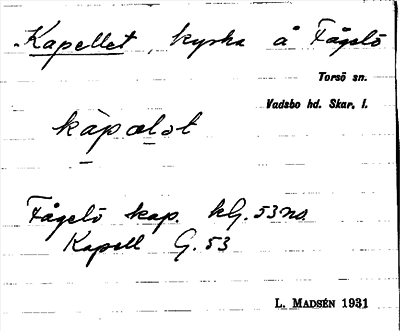 Kapellet, kyrka å Fågelö
Torsö sn.
Vadsbo hd. Skar. l.
kȧpælət
Fågelö kap. kG. 53 no
Kapell G. 53
L. MADSÉN 1931